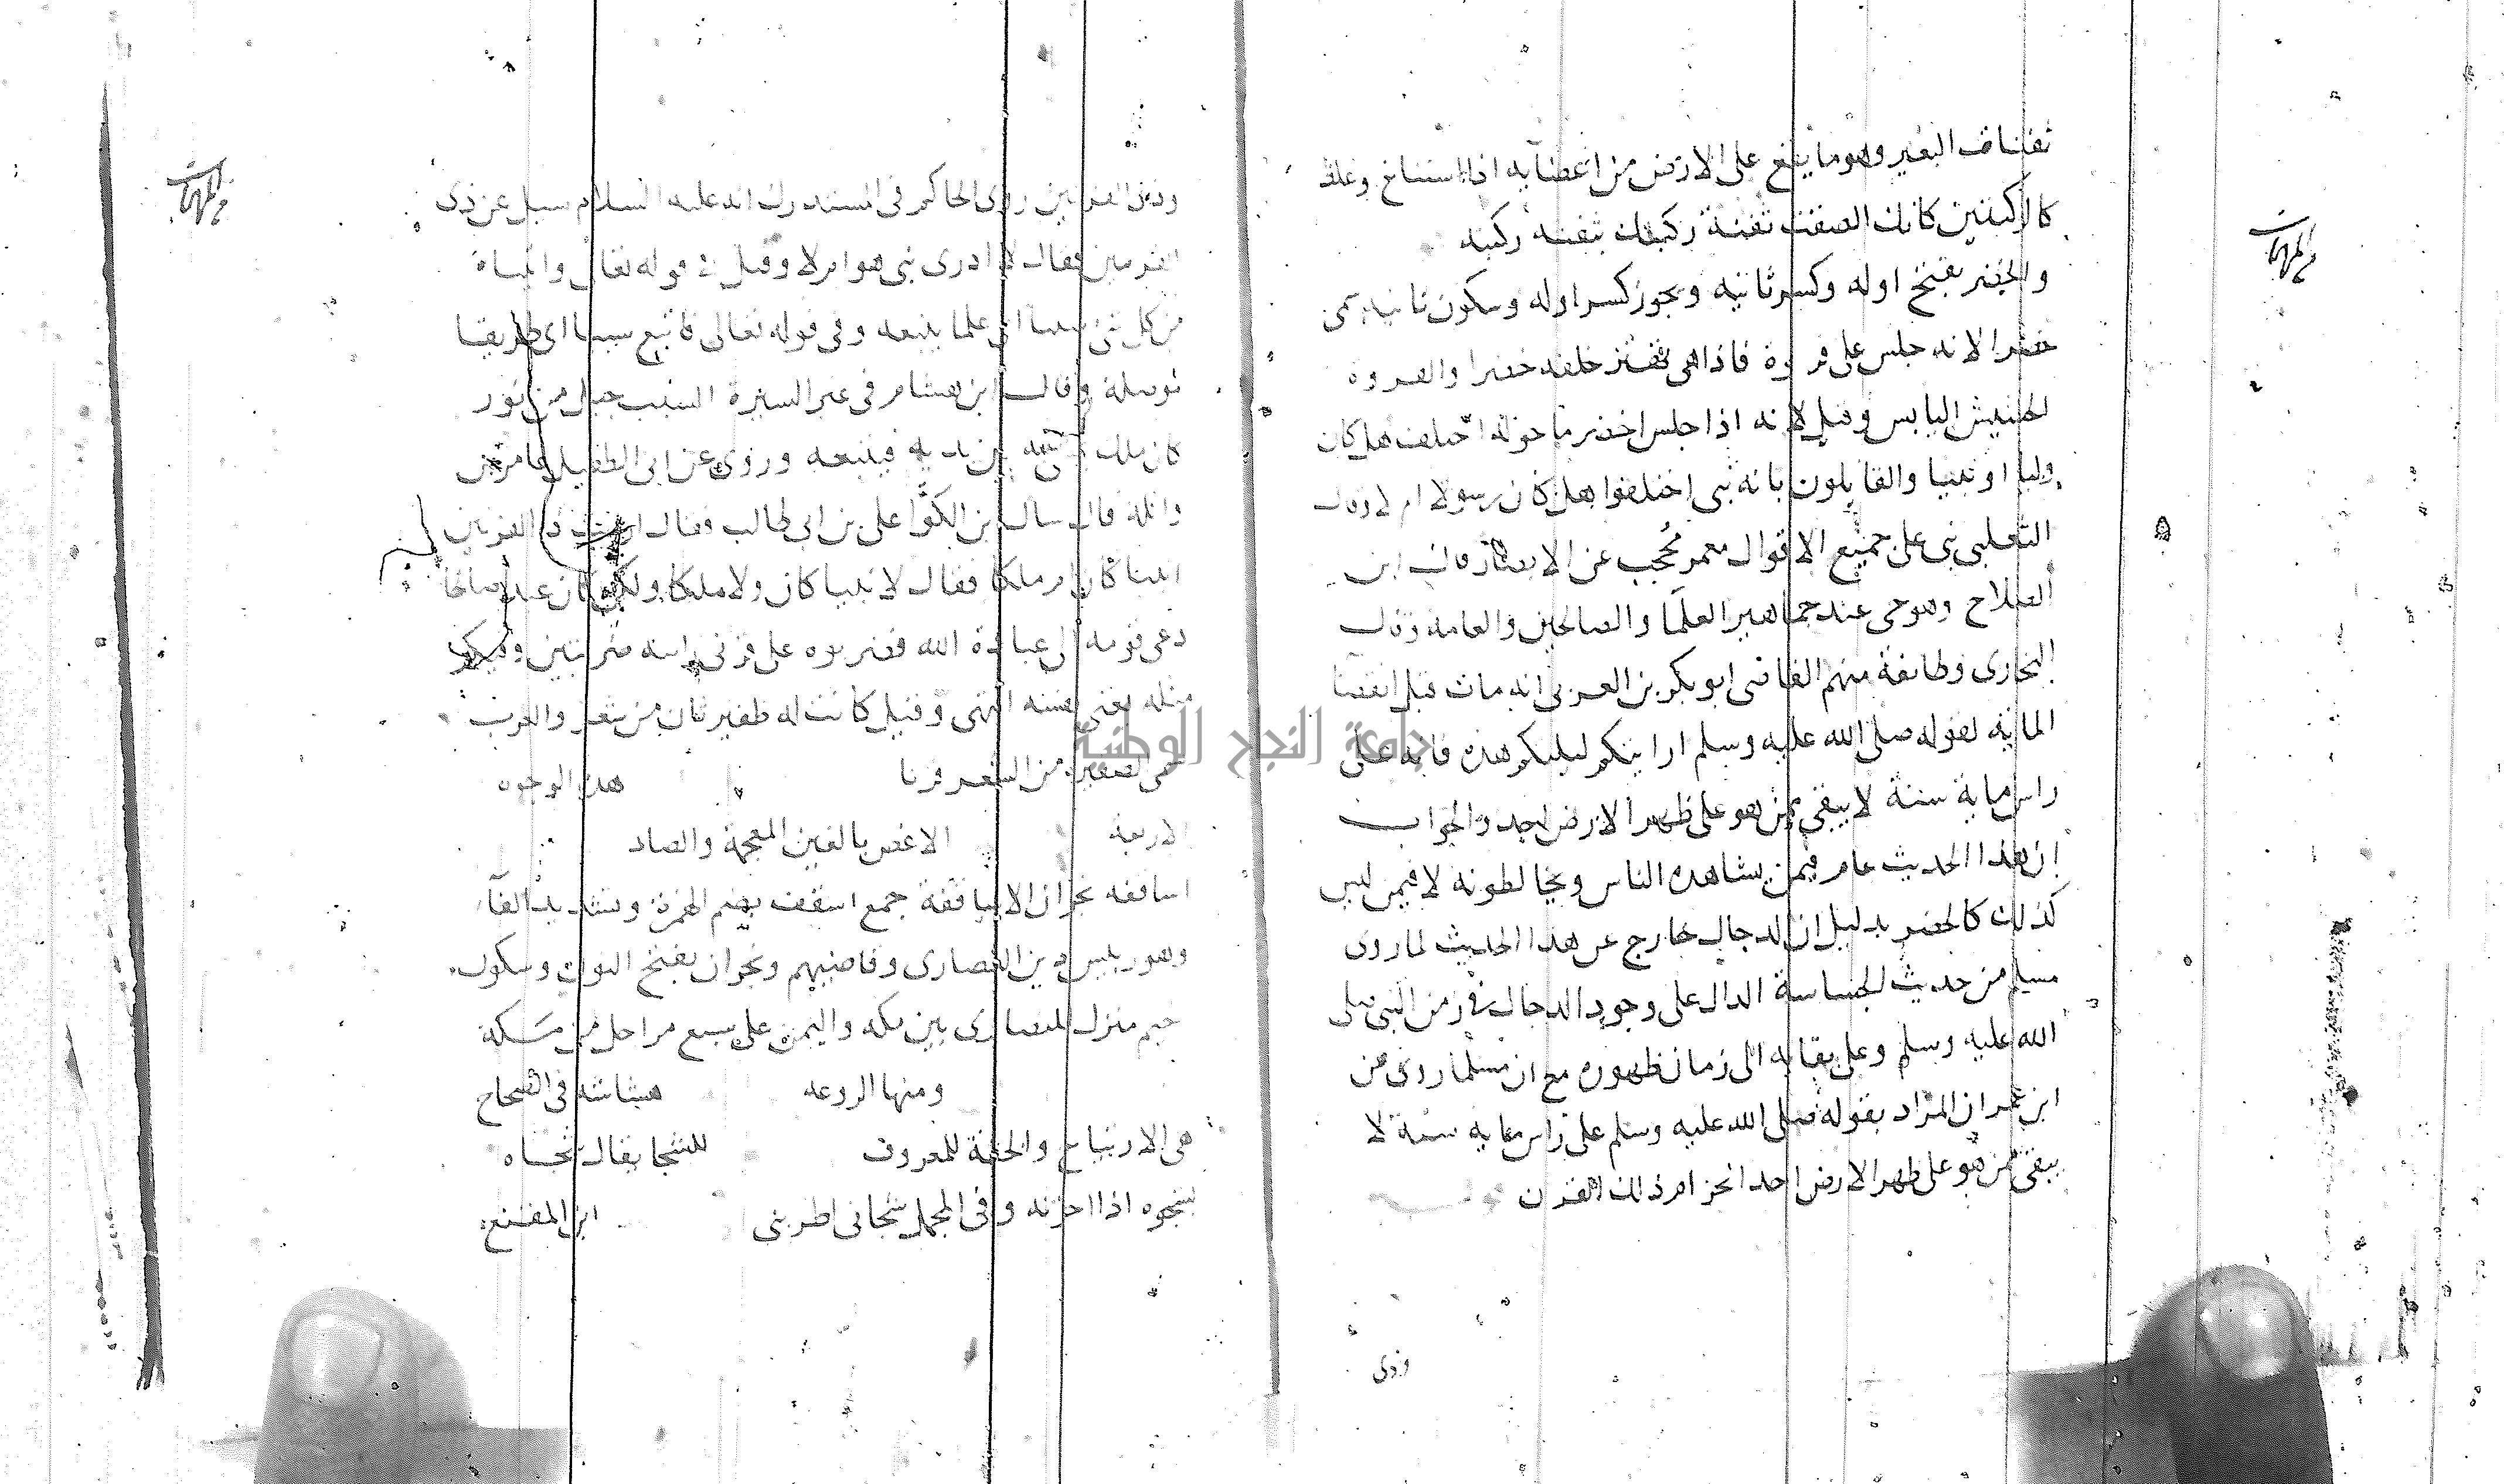 ثفنات البعير وهو ما يقع على الارض من اعضايه اذا استناخ وغلظ
كالركبتين كانك الصقت ثفنة ركبتك بثفنة ركبته
والخضر بفتح اوله وكسر ثانيه ويجوز كسر اوله وسكون ثانيه سمى
خضرا لانه جلس على فروة فاذا هى تهتز خلفه خضرا والفروه
الحشيش اليابس وقيل لانه اذا جلس اخضر ما حوله اختلف هل كان
وليا او نبيا والقايلون بانه نبى اختلفوا هل كان رسولا ام لا وقال
الثعلبى نبى على جميع الاقوال معمر محجب عن الابصار وقال ابن
الصلاح وهو حى عند جماهير العلما والصالحين والعامه وقال
البخارى وطايفة منهم القاضى ابو بكر بن العربى انه مات قبل انقضا
الماية لقوله صلى الله عليه وسلم ارايتكم ليلتكم هذه فانه على
راس ماية سنة لا يبقى ممن هو على ظهر الارض احد والجواب
ان هذا الحديث عام فيمن يشاهده الناس ويخالطونه لا فيمن ليس
كذلك كالخضر بدليل ان الدجال خارج عن هذا الحديث لما روى
مسلم من حديث الجساسة الدال على وجود الدجال فى زمن النبى صلى
الله عليه وسلم وعلى بقايه الى زمان ظهوره مع ان مسلما روى عن
ابن عمر ان المراد بقوله صلى الله عليه وسلم على راس ماية سنة لا
يبقى ممن هو على ظهر الارض احد انخرام ذلك القرن
وذى
وذى القرنين روى الحاكم فى المستدرك انه عليه السلام سيل عن ذى
القرنين فقال لا ادرى نبى هو ام لا وقيل فى قوله تعالى واتيناه
من كل شى سببا اى علما يتبعه وفى قوله تعالى فاتبع سببا اى طريقا
توصله وقال ابن هشام فى غير السيرة السبب حبل من نور
كان ملك يمشى به بين يديه فيتبعه وروى عن ابى الطفيل عامر بن
واثلة قال سال ابن الكوا على بن ابى طالب فقال ارايت ذا القرنين
انبيا كان ام ملكا فقال لا نبيا كان ولا ملكا ولكن كان عبدا صالحا
دعى قومه الى عبادة الله فضربوه على قرنى راسه ضربتين وفيكم
مثله يعنى نفسه انتهى وقيل كانت له ظفيرتان من شعر والعرب
تسمى الضفيرة من الشعر قرنا هذه الوجوه
الاربعة الاغص بالغين المعجمة والصاد
اساقفه نجران الاساقفة جمع اسقف بضم الهمزة وتشديد الفآ
وهو ريس دين النصارى وقاضيهم ونجران بفتح النون وسكون
جيم منزل للنصارى بين مكه واليمن على سبع مراحل من مكة
ومنها الروعه هشاشه فى الصحاح
هى الارتياح والخفة للمعروف للشجا يقال شجاه
يشجوه اذا احزنه وفى المجمل شجانى اطربنى ابن المقفع
جامعة النجاح الوطنية